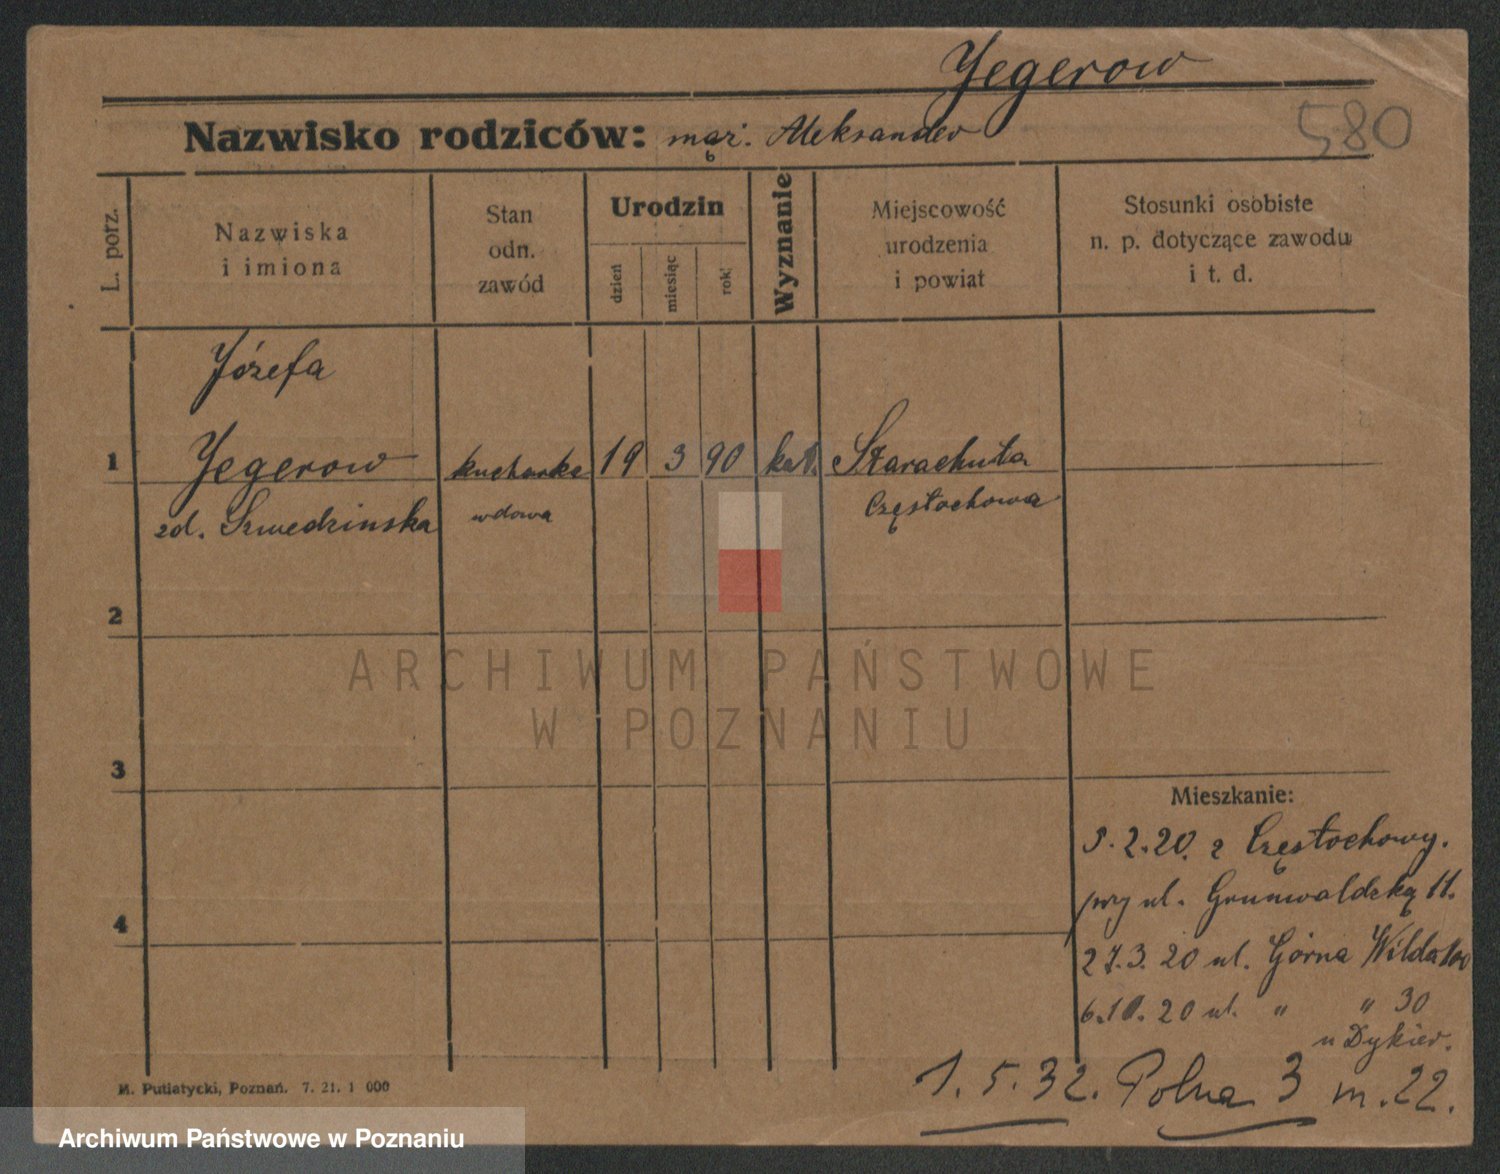 Yegerow
580
Nazwisko rodziców: mąż. Aleksander
L. porz.
Nazwiska
i imiona
Stan
odn.
zawód
Urodzin
dzień
miesiąc
rok
Wyznanie
Miejscowość
urodzenia
i powiat
Stosunki osobiste
n. p. dotyczące zawodu
i t. d.
Józefa
1 Yegerow kucharka 19 3 90 kat. Starachuta
zd. Szwedzinska wdowa Częstochowa
2
3
4
Mieszkanie:
5.2.20. z Częstochowy.
przy ul. Grunwaldzką 11.
27.3.20 ul. Górna Wilda
6.10.20 ul. " " 30
u Dykier.
1.5.32. Polna 3 m. 22.
M. Putiatycki, Poznań. 7. 21. 1 000
ARCHIWUM PAŃSTWOWE
W POZNANIU
Archiwum Państwowe w Poznaniu